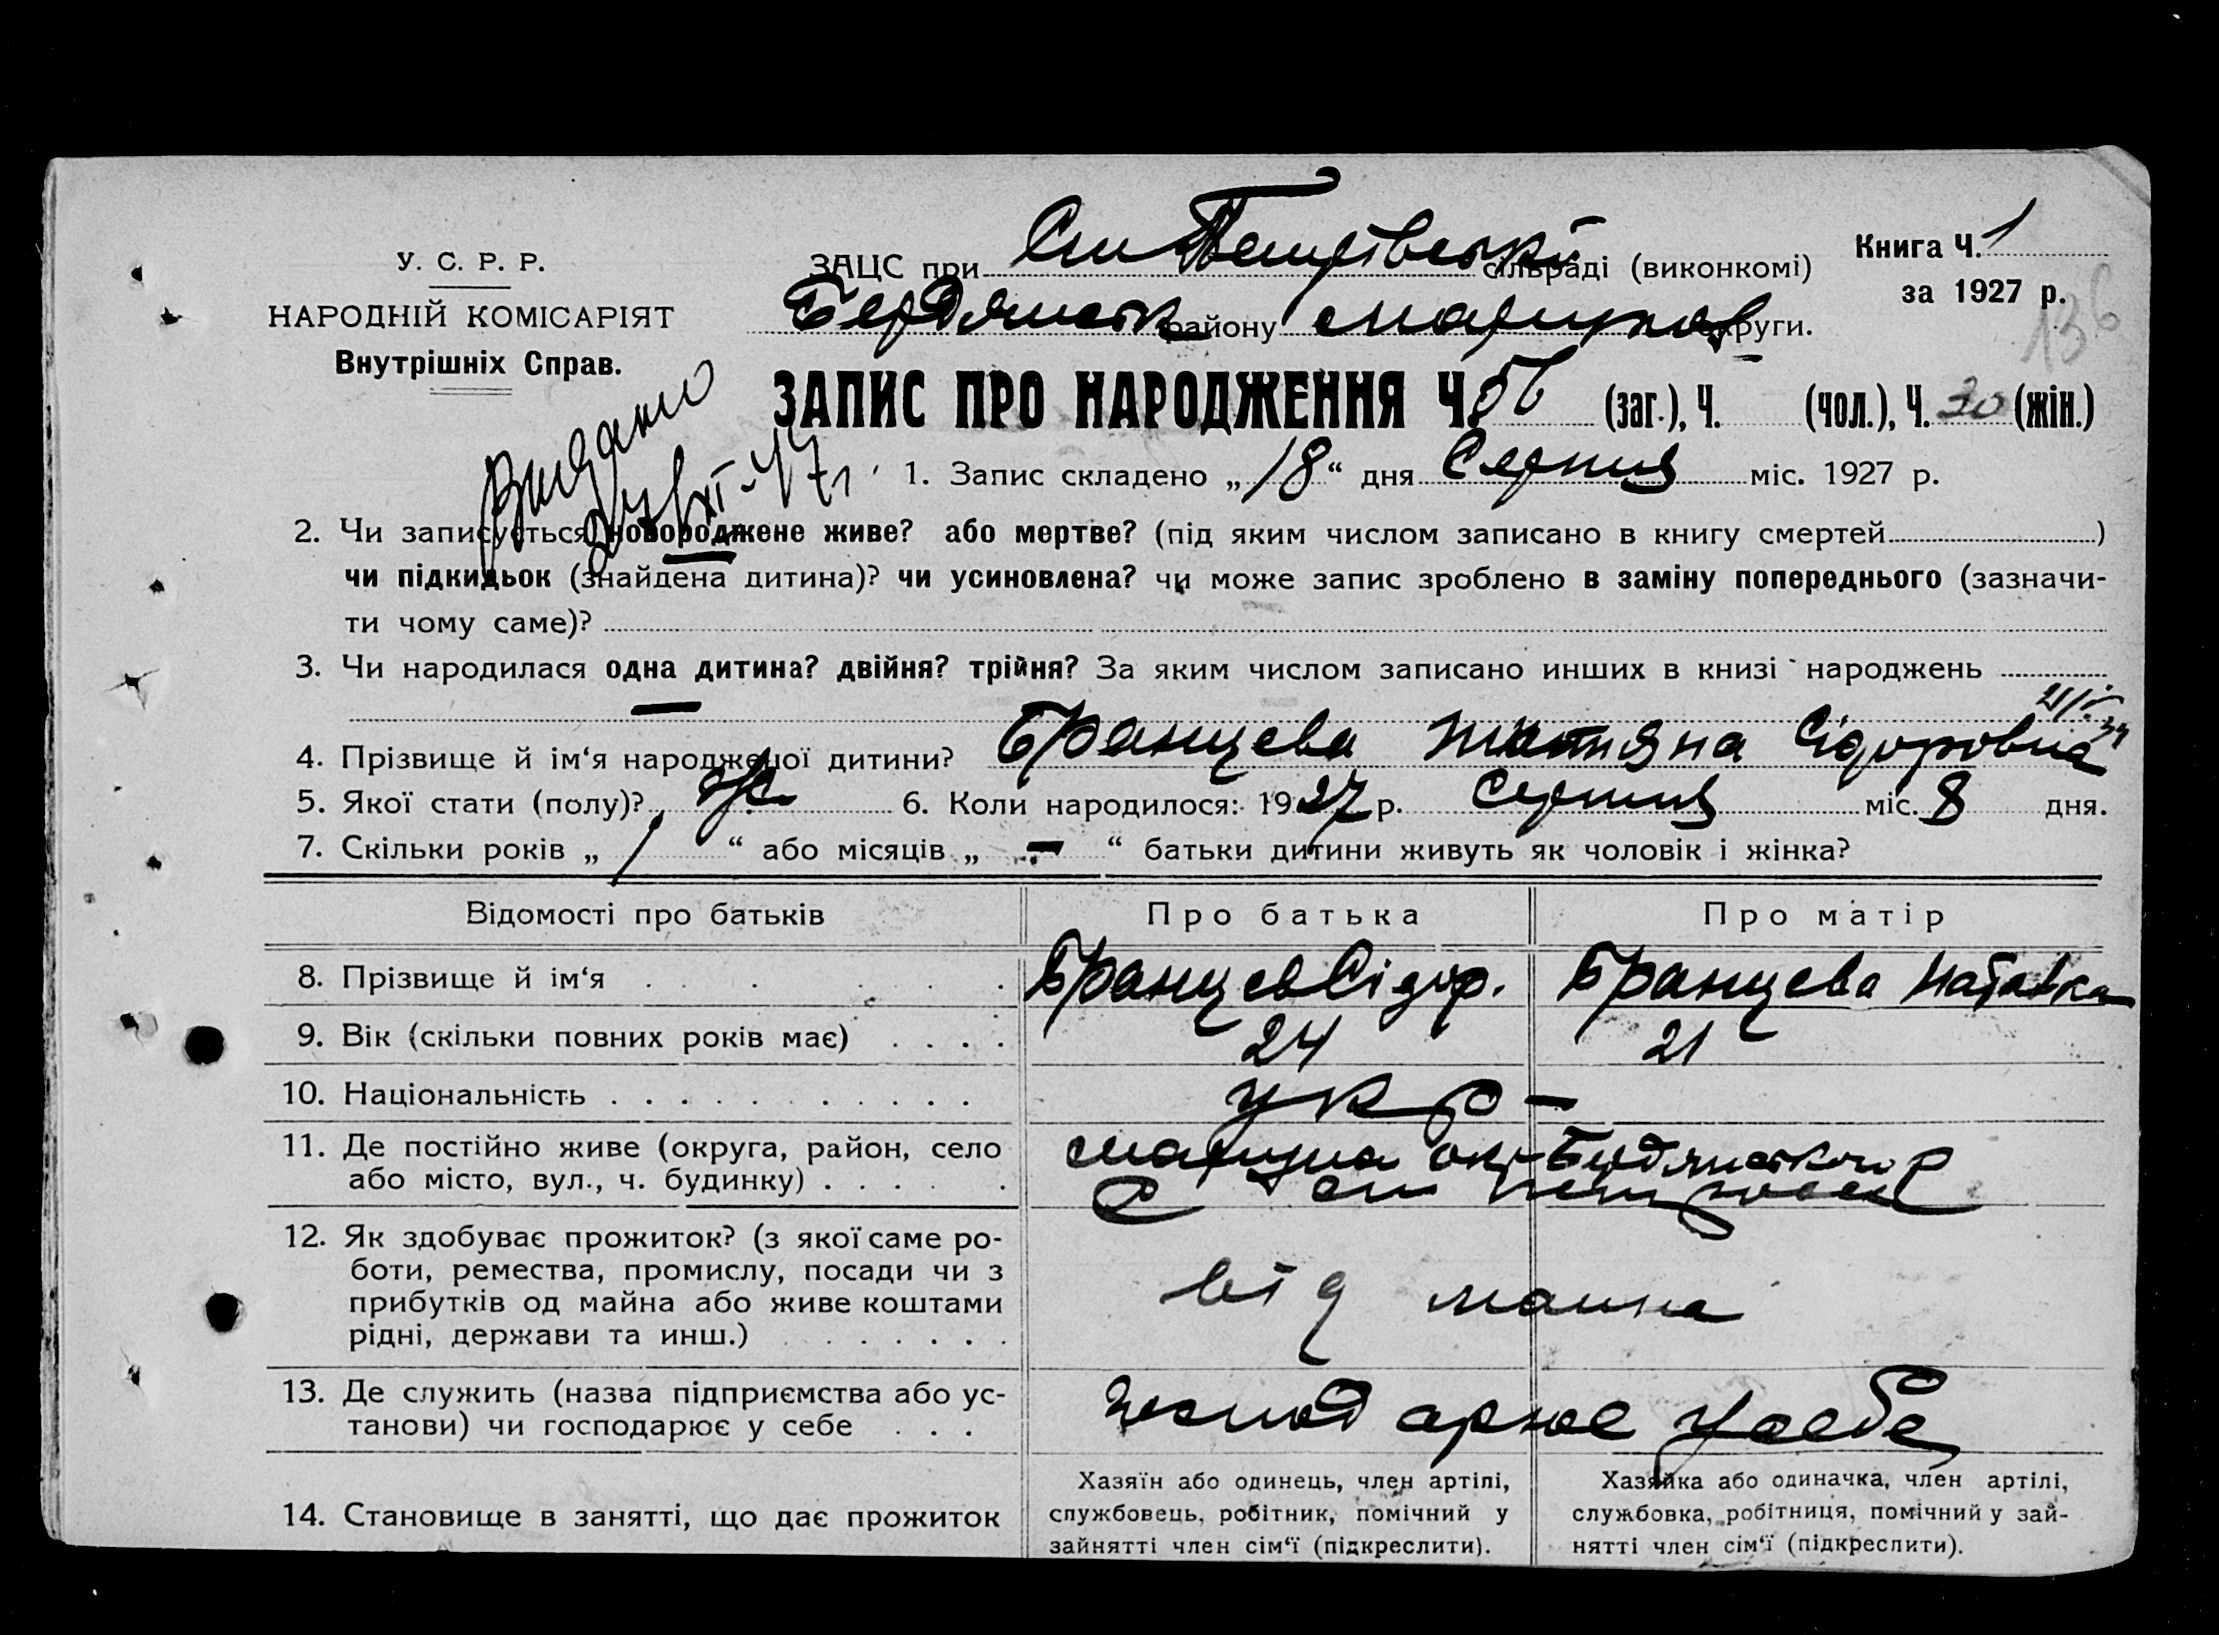 У. С. Р. Р.
НАРОДНІЙ КОМІСАРІЯТ
Внутрішніх Справ.
ЗАЦС при сільраді (виконкомі)
Бердянськ району округи.
Книга Ч. 1
за 1927 р.
136
Видано
ЗАПИС ПРО НАРОДЖЕННЯ Ч. 56 (заг.), Ч. (чол.), Ч. 30 (жін.)
1. Запис складено „18“ дня Серпня міс. 1927 р.
2. Чи записується новороджене живе? або мертве? (під яким числом записано в книгу смертей )
чи підкидьок (знайдена дитина)? чи усиновлена? чи може запис зроблено в заміну попереднього (зазначи-
ти чому саме)?
3. Чи народилася одна дитина? двійня? трійня? За яким числом записано инших в книзі народжень
4. Прізвище й ім‘я народженої дитини? Бранцева Татяна Сідоровна
5. Якої стати (полу)? ж. 6. Коли народилося: 1927 р. Серпня міс. 8 дня.
7. Скільки років „ 1 “ або місяців „ — “ батьки дитини живуть як чоловік і жінка?
Відомості про батьків Про батька Про матір
8. Прізвище й ім‘я . . . . . . Бранцев Сідор. Бранцева Наталка
9. Вік (скільки повних років має) . . . . 24 21
10. Національність . . . . . . . . . . . укр —
11. Де постійно живе (округа, район, село
або місто, вул., ч. будинку) . . . . .
12. Як здобуває прожиток? (з якої саме ро-
боти, ремества, промислу, посади чи з
прибутків од майна або живе коштами
рідні, держави та инш.) . . . . . . .
від маина
13. Де служить (назва підприємства або ус-
танови) чи господарює у себе . . .
господарює у себе
14. Становище в занятті, що дає прожиток
Хазяїн або одинець, член артілі,
службовець, робітник, помічний у
зайнятті член сім‘ї (підкреслити).
Хазяйка або одиначка, член артілі,
службовка, робітниця, помічний у зай-
нятті член сім‘ї (підкреслити).